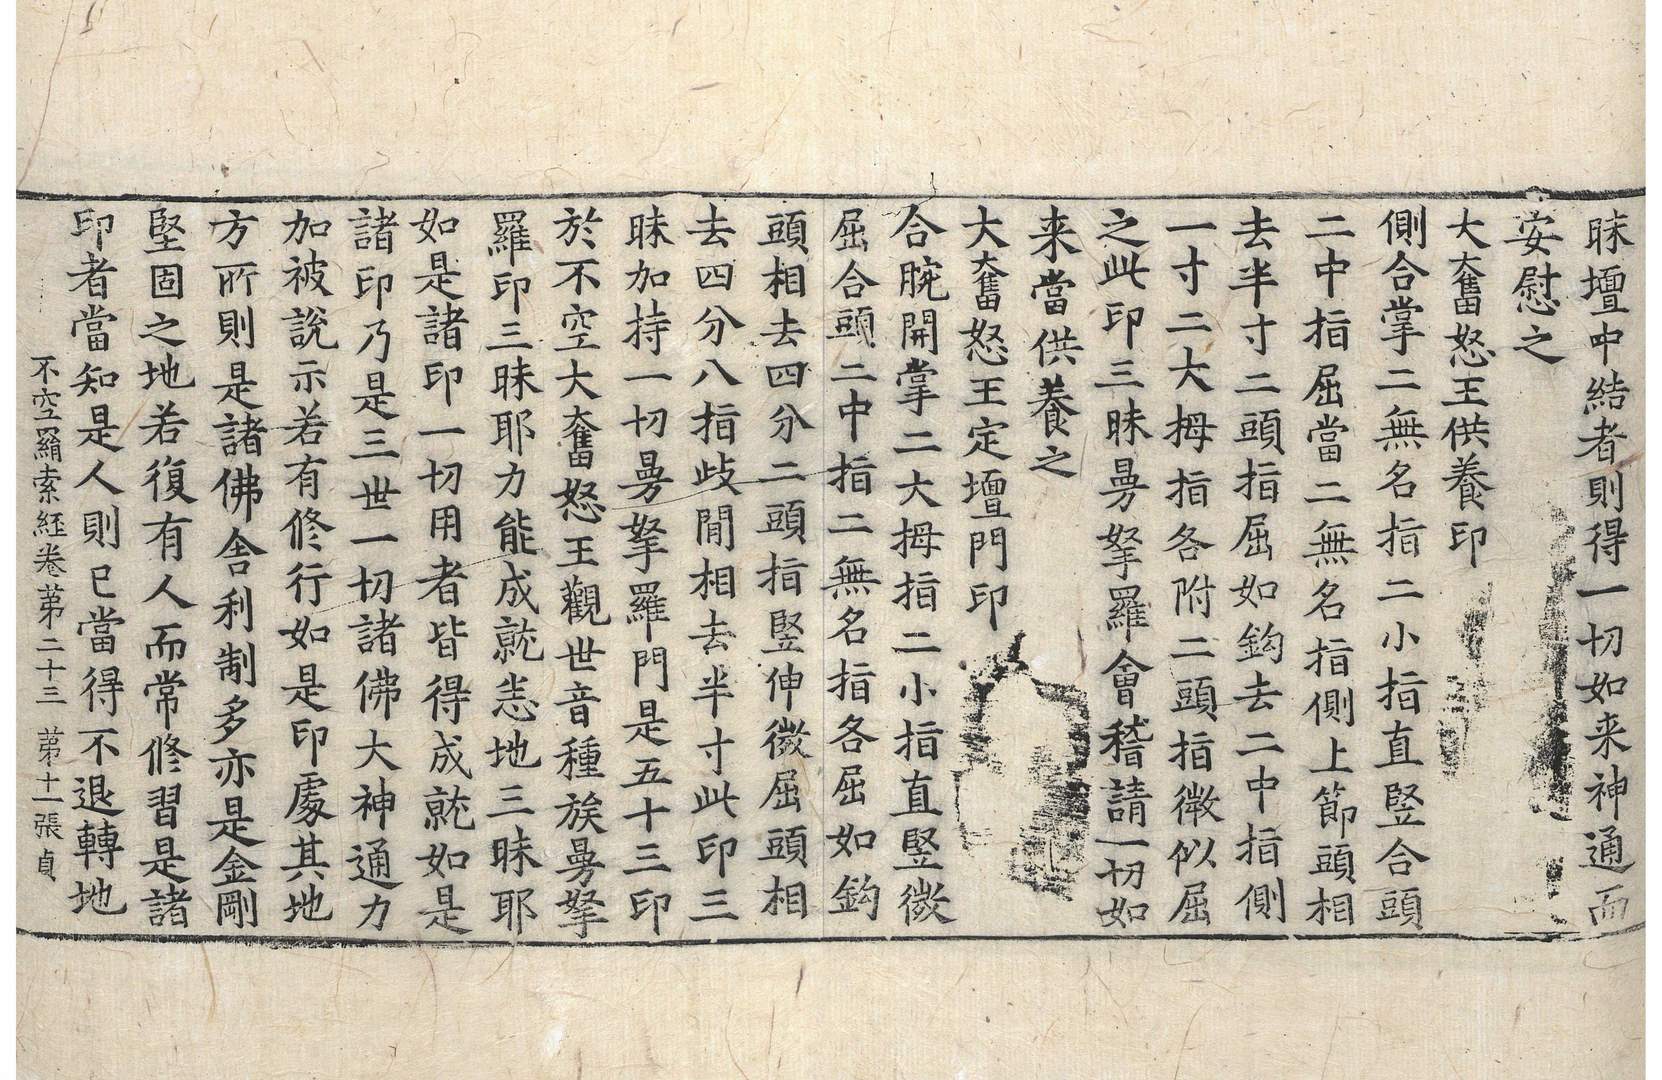 昧壇中結者則得一切如来神通而
安慰之
大奮怒王供養印
側合掌二無名指二小指直竪合頭
二中指屈當二無名指側上節頭相
去半寸二頭指屈如鈎去二中指側
一寸二大拇指各附二頭指微似屈
之此印三昧曼拏羅會稽請一切如
来當供養之
大奮怒王定壇門印
合腕開掌二大拇指二小指直竪微
屈合頭二中指二無名指各屈如鈎
頭相去四分二頭指竪伸微屈頭相
去四分八指歧閒相去半寸此印三
昧加持一切曼拏羅門是五十三印
於不空大奮怒王觀世音種族曼拏
羅印三昧耶力能成就悉地三昧耶
如是諸印一切用者皆得成就如是
諸印乃是三世一切諸佛大神通力
加被說示若有修行如是印處其地
方所則是諸佛舍利制多亦是金剛
堅固之地若復有人而常修習是諸
印者當知是人則已當得不退轉地
不空羂索經卷第二十三 第十一張 貞